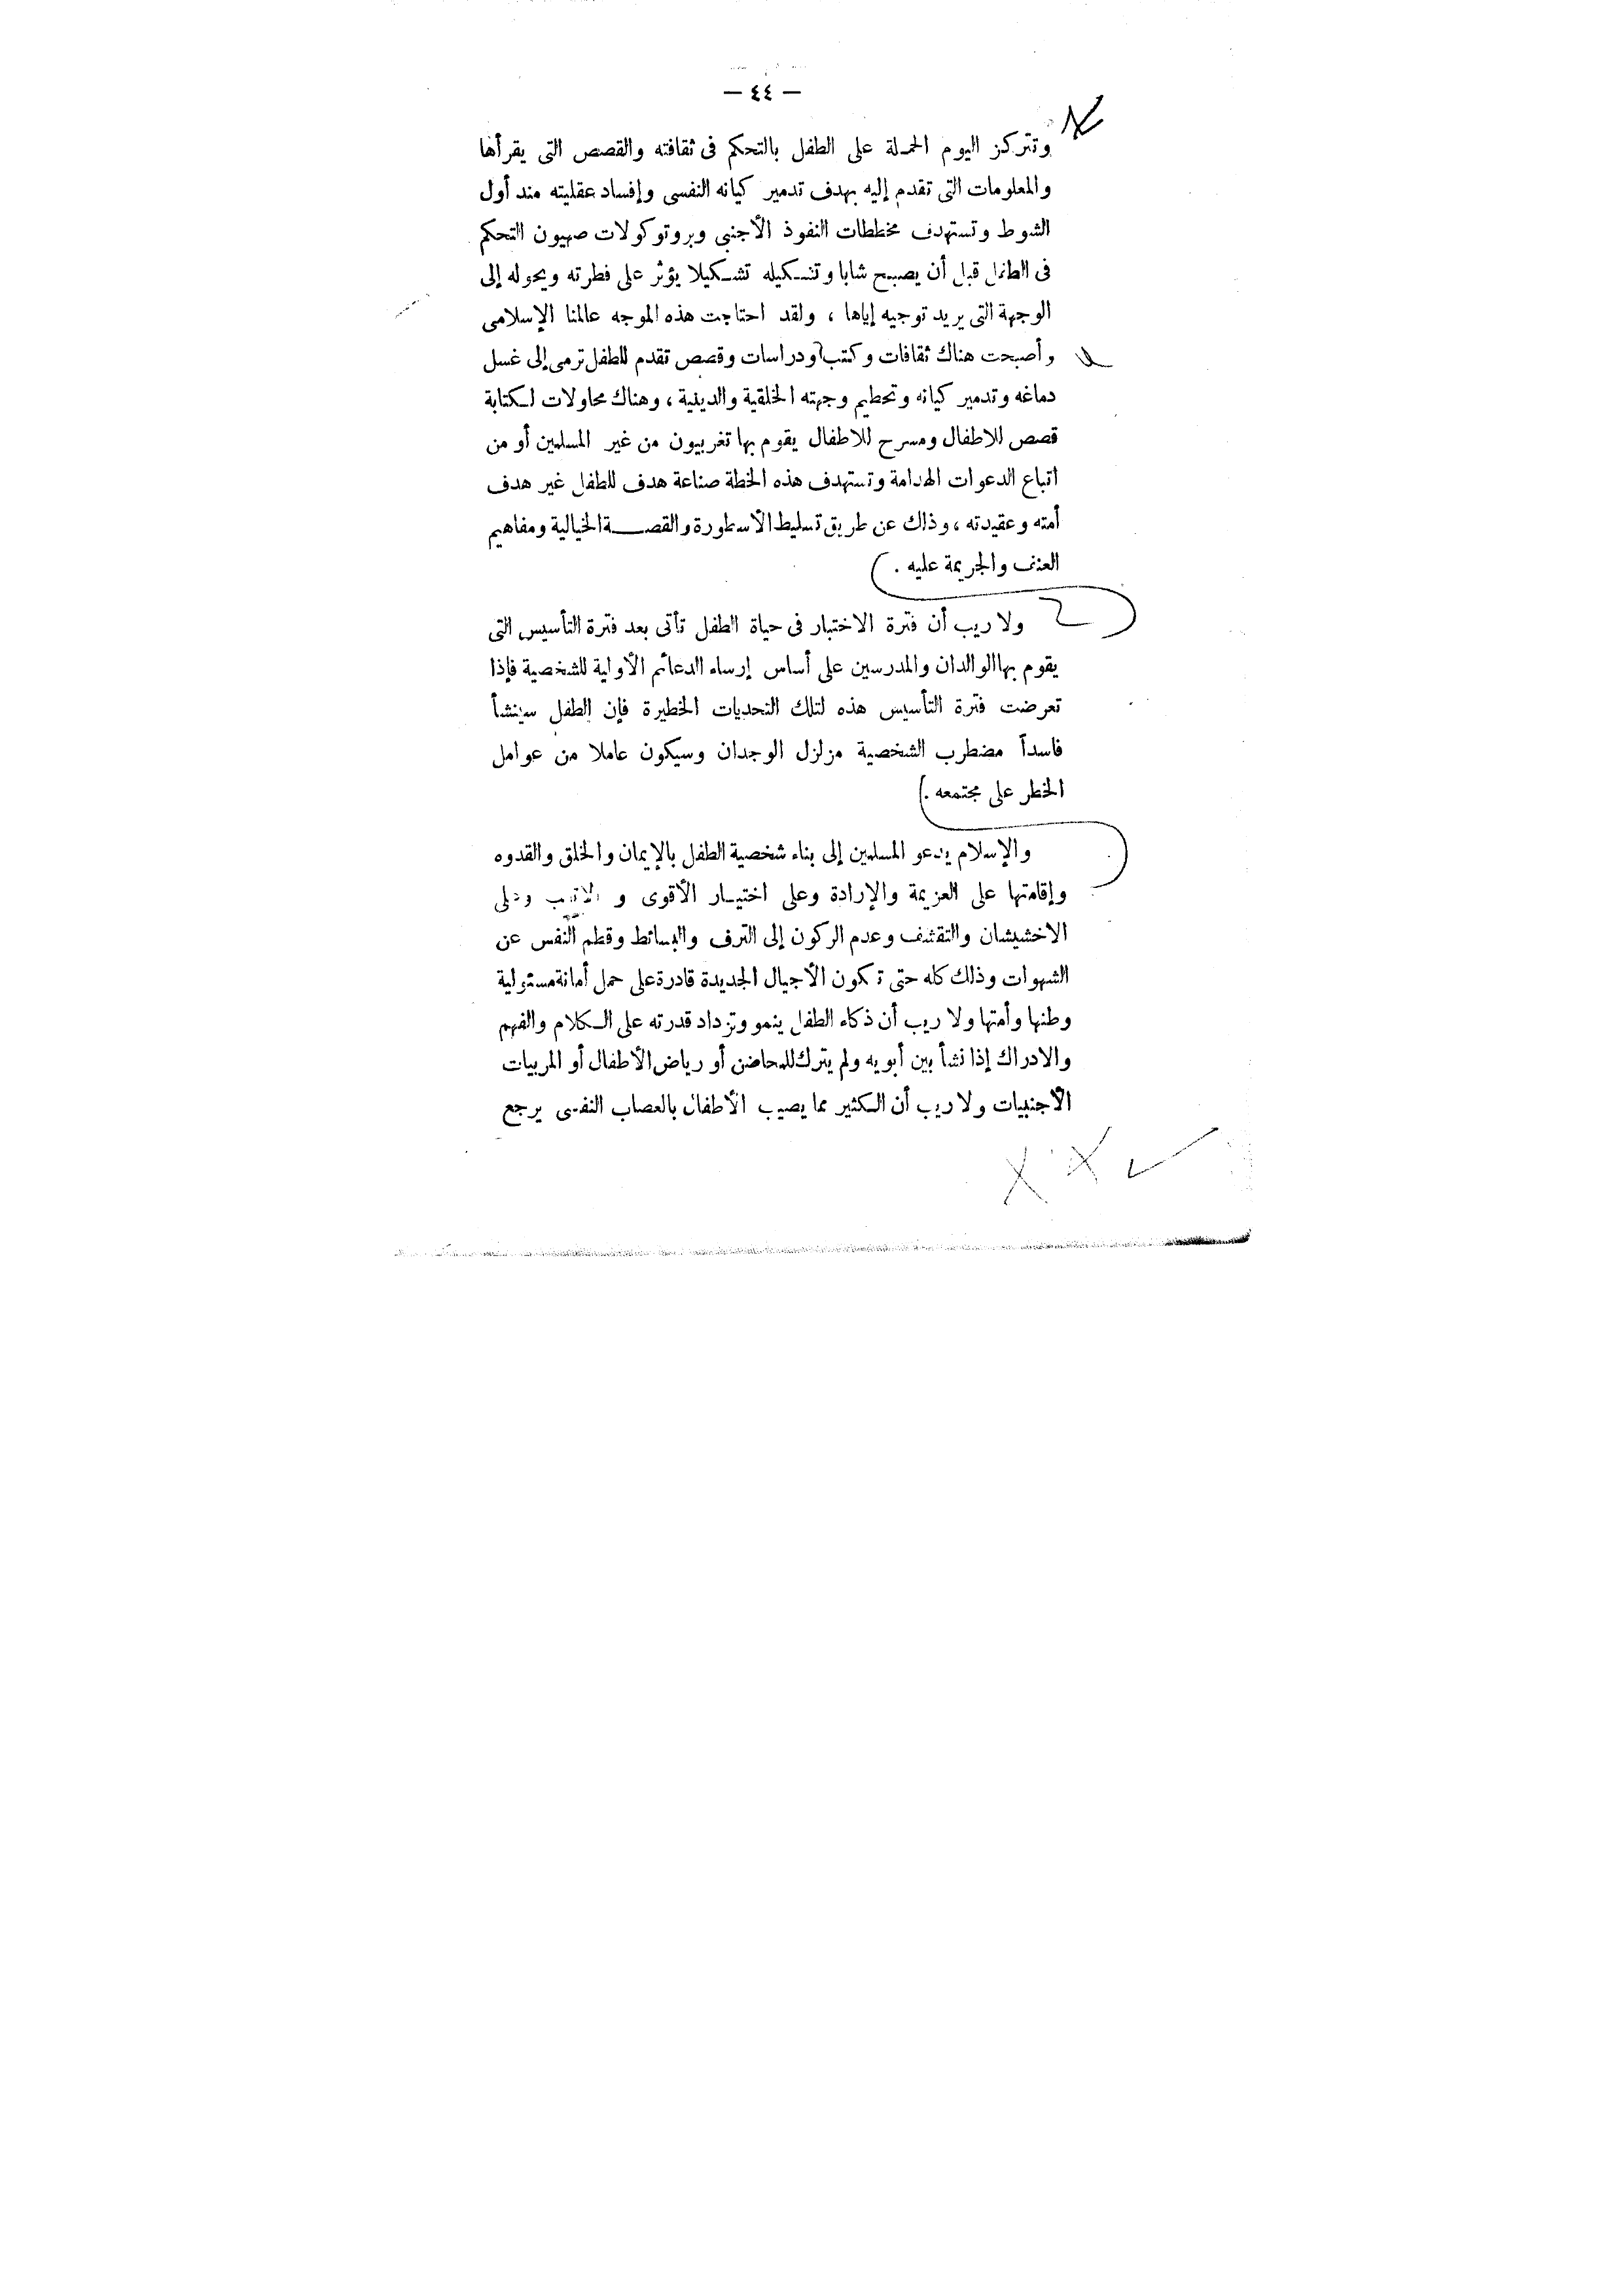 — ٤٤ —
وتتركز اليوم الحملة على الطفل بالتحكم فى ثقافته والقصص التى يقرأها
والمعلومات التى تقدم إليه بهدف تدمير كيانه النفسى وإفساد عقليته مند أول
الشوط وتستهدف مخططات النفوذ الأجنبى وبروتوكولات صهيون التحكم
فى الطفل قبل أن يصبح شابا وتشكيله تشكيلا يؤثر على فطرته ويحوله إلى
الوجهة التى يريد توجيه إياها ، ولقد احتاجت هذه الموجه عالمنا الإسلامى
وأصبحت هناك ثقافات وكتب ودراسات وقصص تقدم للطفل ترمى إلى غسل
دماغه وتدمير كيانه وتحطيم وجهته الخلقية والدينية ، وهناك محاولات لكتابة
قصص للاطفال ومسرح للاطفال يقوم بها تغربيون من غير المسلمين أو من
اتباع الدعوات الهدامة وتستهدف هذه الخطة صناعة هدف للطفل غير هدف
أمته وعقيدته ، وذلك عن طريق تسليط الأسطورة والقصة الخيالية ومفاهيم
العنف والجريمة عليه .
ولا ريب أن فترة الاختبار فى حياة الطفل تأتى بعد فترة التأسيس التى
يقوم بها الوالدان والمدرسين على أساس إرساء الدعائم الأولية للشخصية فإذا
تعرضت فترة التأسيس هذه لتلك التحديات الخطيرة فإن الطفل سينشأ
فاسداً مضطرب الشخصية مزلزل الوجدان وسيكون عاملا من عوامل
الخطر على مجتمعه .
والإسلام يدعو المسلمين إلى بناء شخصية الطفل بالإيمان والخلق والقدوه
وإقامتها على العزيمة والإرادة وعلى اختيار الأقوى و وعلى
الاخشيشان والتقشف وعدم الركون إلى الترف والبسائط وفطم النفس عن
الشهوات وذلك كله حتى تكون الأجيال الجديدة قادرة على حمل أمانة مسئولية
وطنها وأمتها ولا ريب أن ذكاء الطفل ينمو وتزداد قدرته على الكلام والفهم
والادراك إذا نشأ بين أبويه ولم يترك للمحاضن أو رياض الأطفال أو المربيات
الأجنبيات ولا ريب أن الكثير مما يصيب الأطفال بالعصاب النفسى يرجع